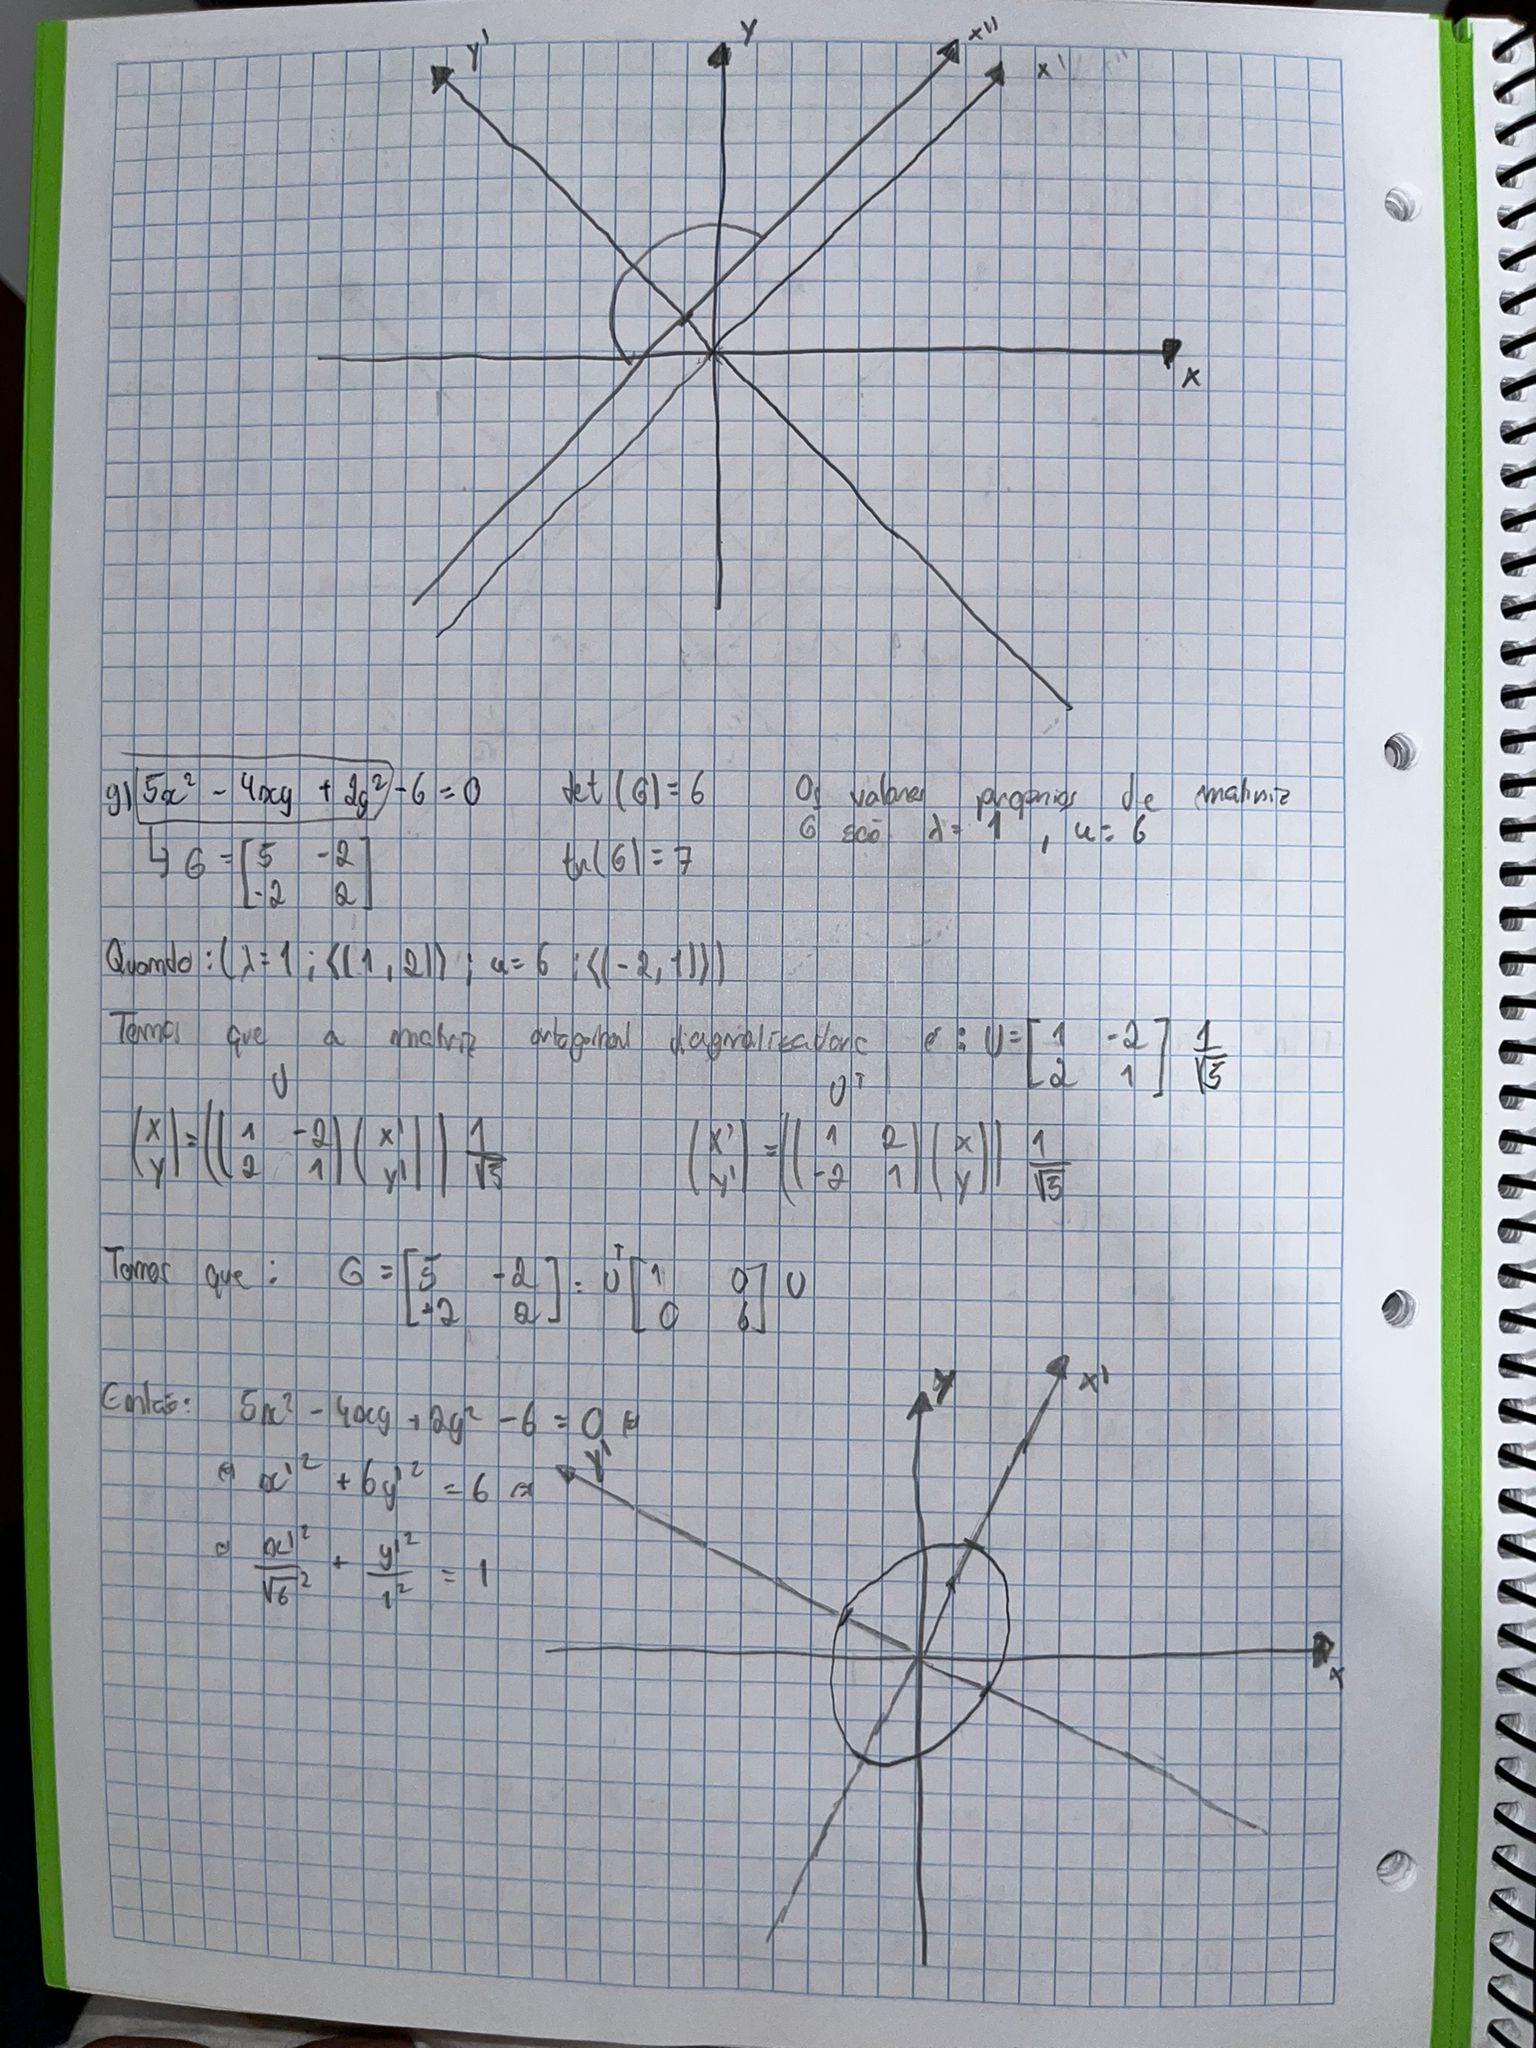 y'
y
x''
x'
x
g) 5x² - 4xy + 2y² - 6 = 0 det(G) = 6 Os valores próprios de matriz
G são λ = 1 , u = 6
↳ G = [5 -2
-2 2] tr(G) = 7
Quando: (λ = 1 ; ⟨(1, 2)⟩ ; u = 6 ; ⟨(-2, 1)⟩)
Temos que a matriz ortogonal diagonalizadora é : U = [1 -2
2 1] 1/√5
U U^T
(x
y) = ((1 -2
2 1)(x'
y')) 1/√5 (x'
y') = ((1 2
-2 1)(x
y)) 1/√5
Temos que : G = [5 -2
-2 2] = U^T [1 0
0 6] U
Então: 5x² - 4xy + 2y² - 6 = 0 ⇔
⇔ x'² + 6y'² = 6 ⇔
⇔ x'²/√6² + y'²/1² = 1
y
x'
y'
x